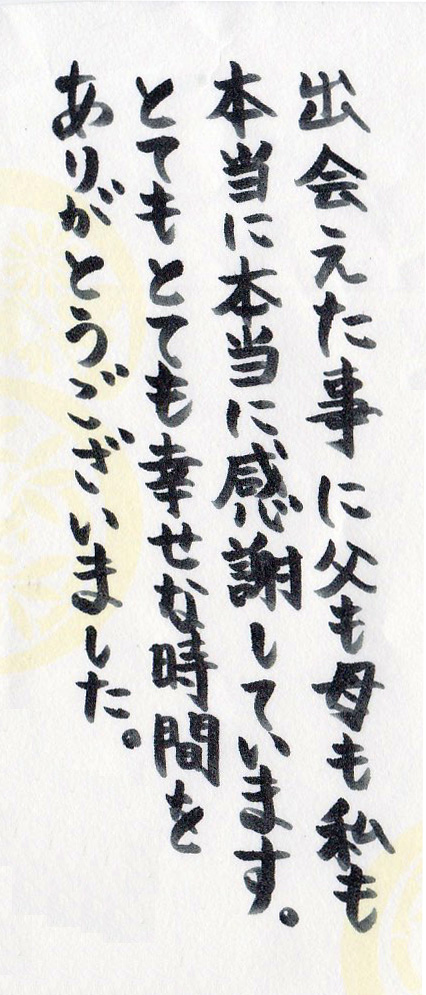 出会えた事に父も母も私も
本当に本当に感謝しています。
とてもとても幸せな時間を
ありがとうございました。